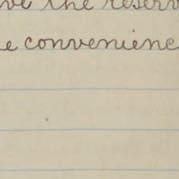 ve the reserv
e convenienc